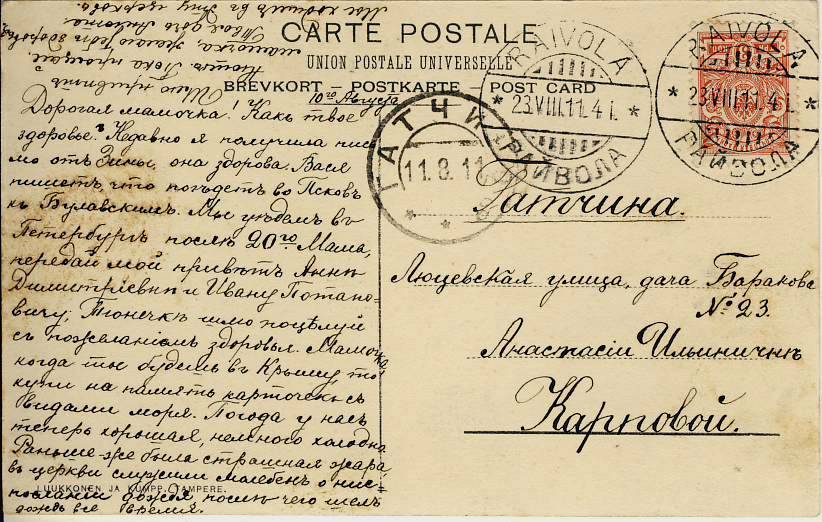 CARTE POSTALE
UNION POSTALE UNIVERSELLE
BREVKORT POSTKARTE POST CARD
10го Августа
Дорогая мамочка! Какъ твое
здоровье? Недавно я получила пись
мо отъ Зины, она здорова. Вася
пишетъ, что поѣдетъ во Псковъ
къ Булавскимъ. Мы уѣдемъ въ
Петербургъ послѣ 20го Мама,
передай мой привѣтъ Аннѣ
Димитріевнѣ и Ивану Потапо-
вичу, Тюнечкѣ поцѣлуй
съ пожеланіемъ здоровья. Мамочка
когда ты будешь въ Крыму то
купи на память карточекъ съ
видами моря. Погода у насъ
теперь хорошая, немного холодно
Раньше-же была страшная жара,
въ церкви служили молебенъ о нис-
посланіи дождя, послѣ чего шелъ
дождь все время.
Шлю привѣтъ
Пока прощай
мамочка, желаю тебѣ здоровья
Твоя дочь
Мы ходимъ въ церковь
RAIVOLA
23.VIII.11. 4 i.
РАЙВОЛА
RAIVOLA
23.VIII.11. 4 i.
РАЙВОЛА
ГАТЧИНА
11.8.11
Гатчина.
Люцевская улица, дача Баракова
№ 23.
Анастасіи Ильиничнѣ
Карповой.
LUUKKONEN JA KUMPP. TAMPERE.